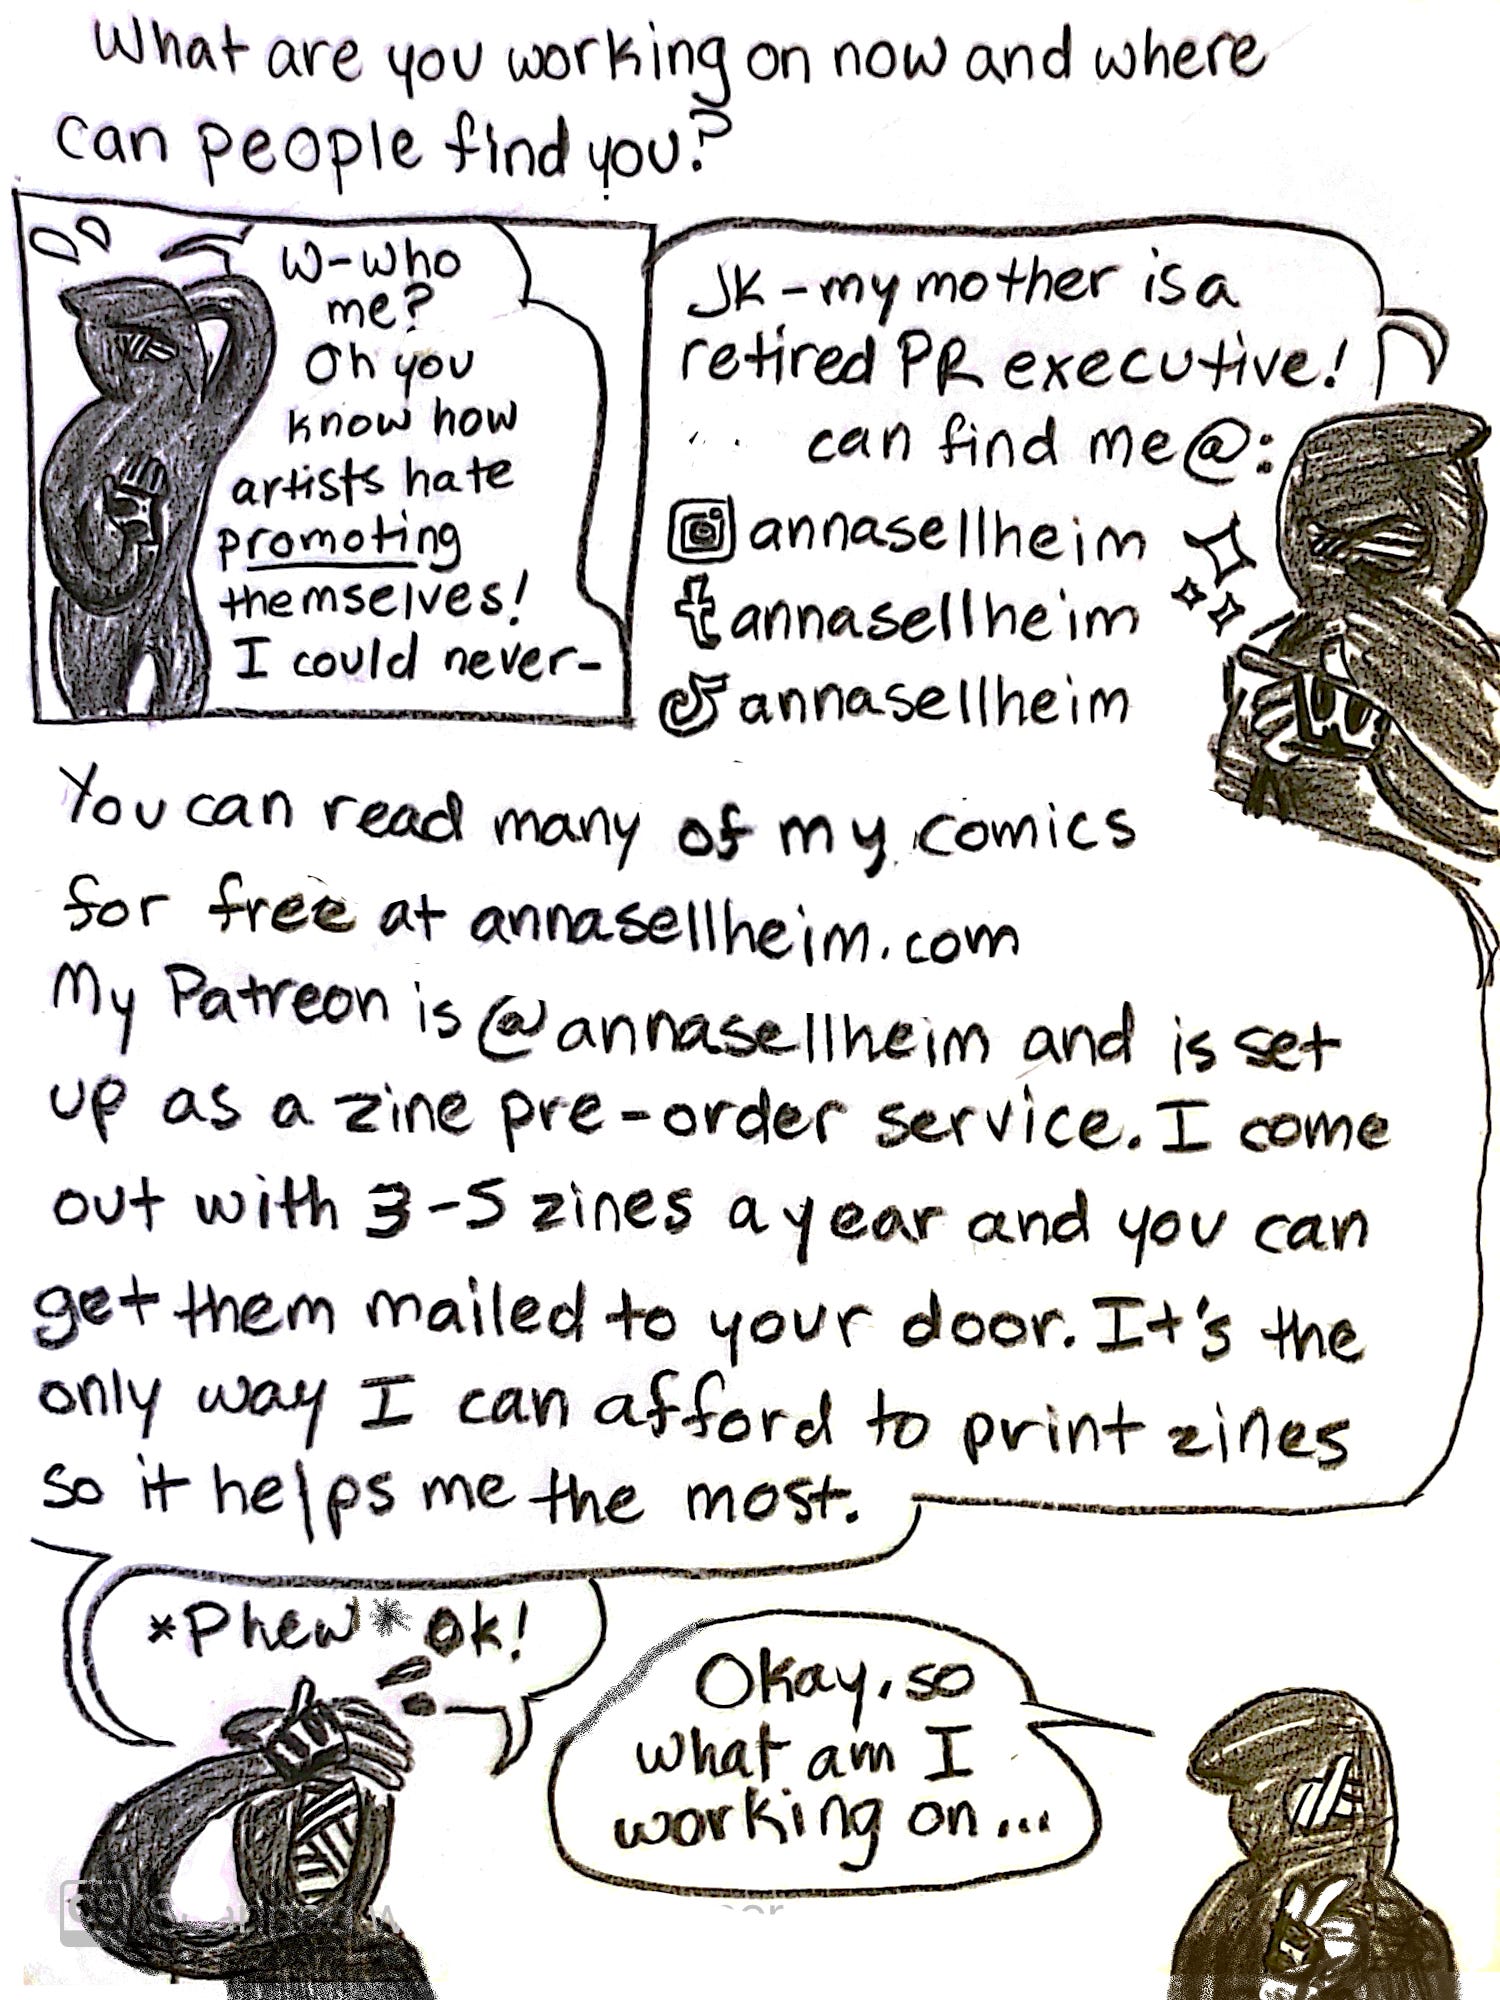 What are you working on now and where
can people find you?
W-who
me?
Oh you
know how
artists hate
promoting
themselves!
I could never-
JK-my mother is a
retired PR executive!
can find me@:
annasellheim
annasellheim
annasellheim
You can read many of my comics
for free at annasellheim.com
My Patreon is @annasellheim and is set
up as a zine pre-order service. I come
out with 3-5 zines a year and you can
get them mailed to your door. It's the
only way I can afford to print zines
so it helps me the most.
*Phew* Ok!
Okay, so
what am I
working on...